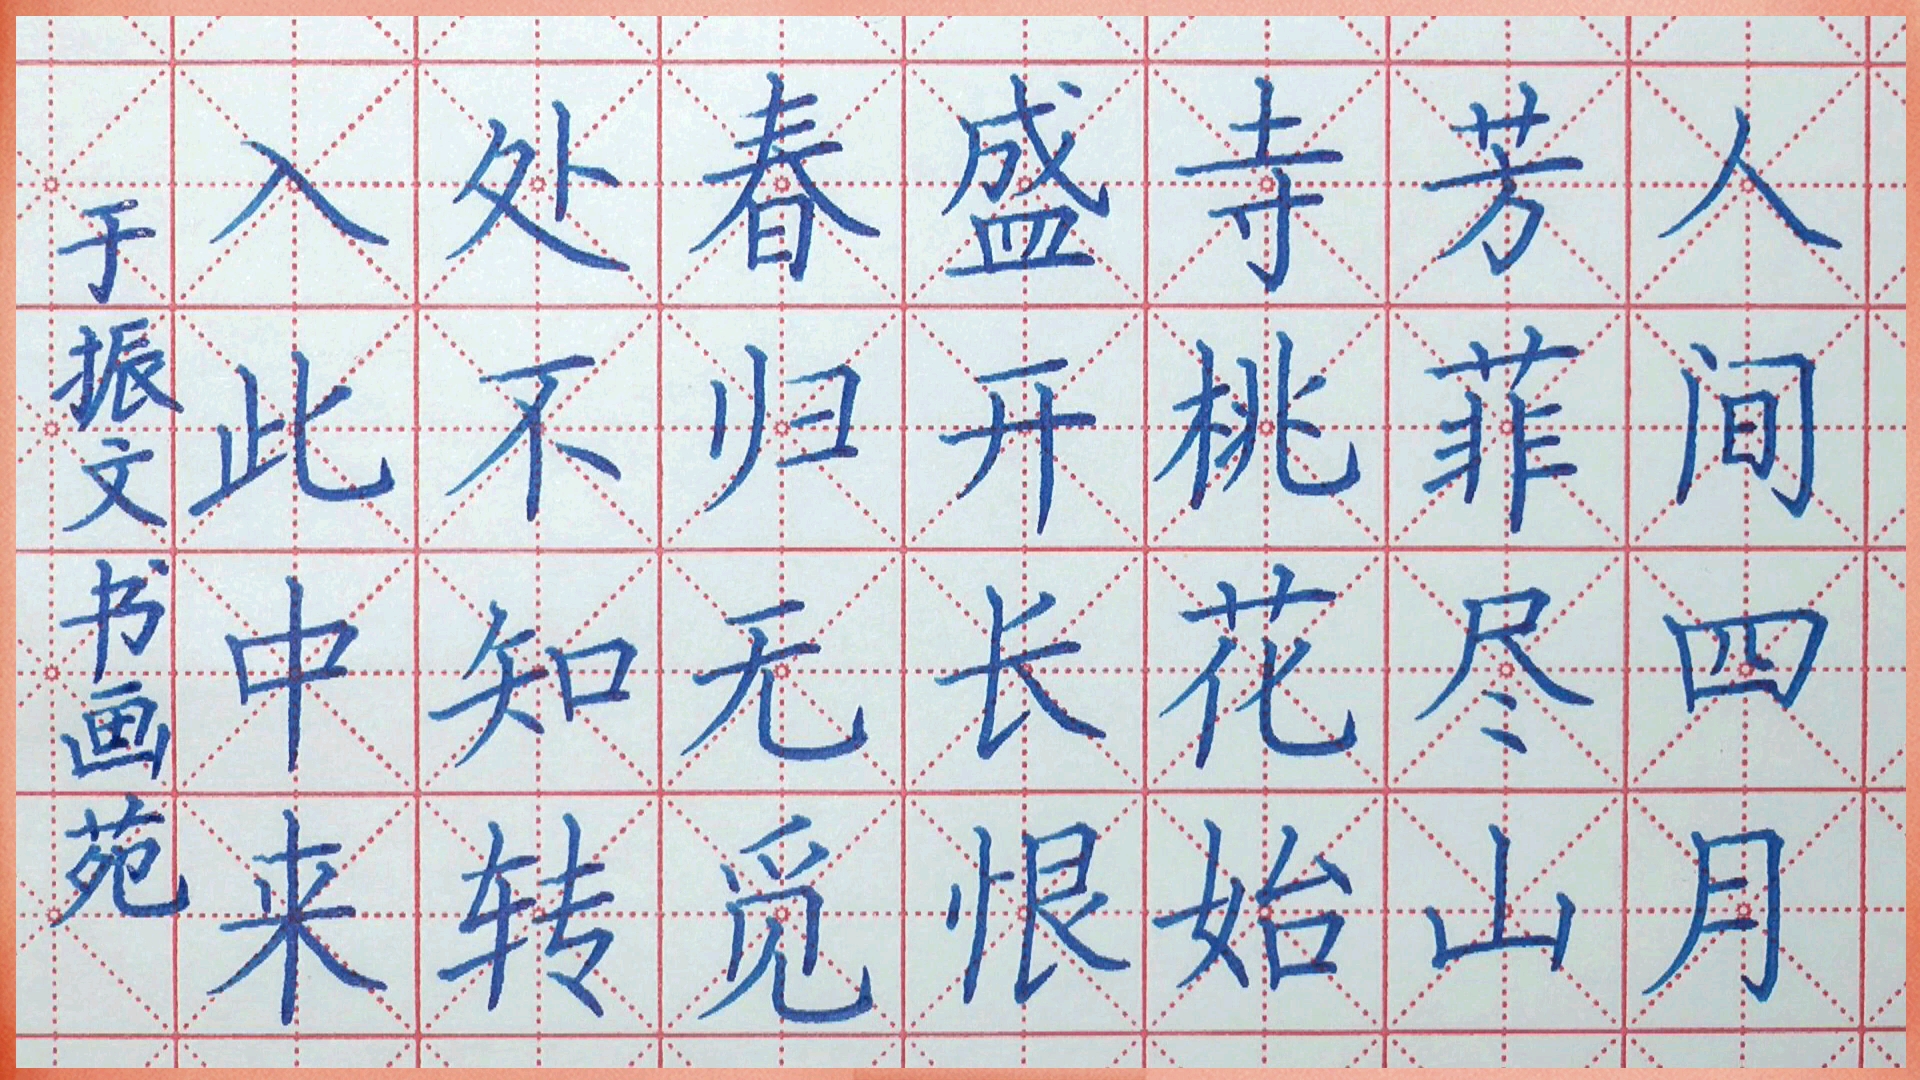 人间四月
芳菲尽山
寺桃花始
盛开长恨
春归无觅
处不知转
入此中来
于振文书画苑